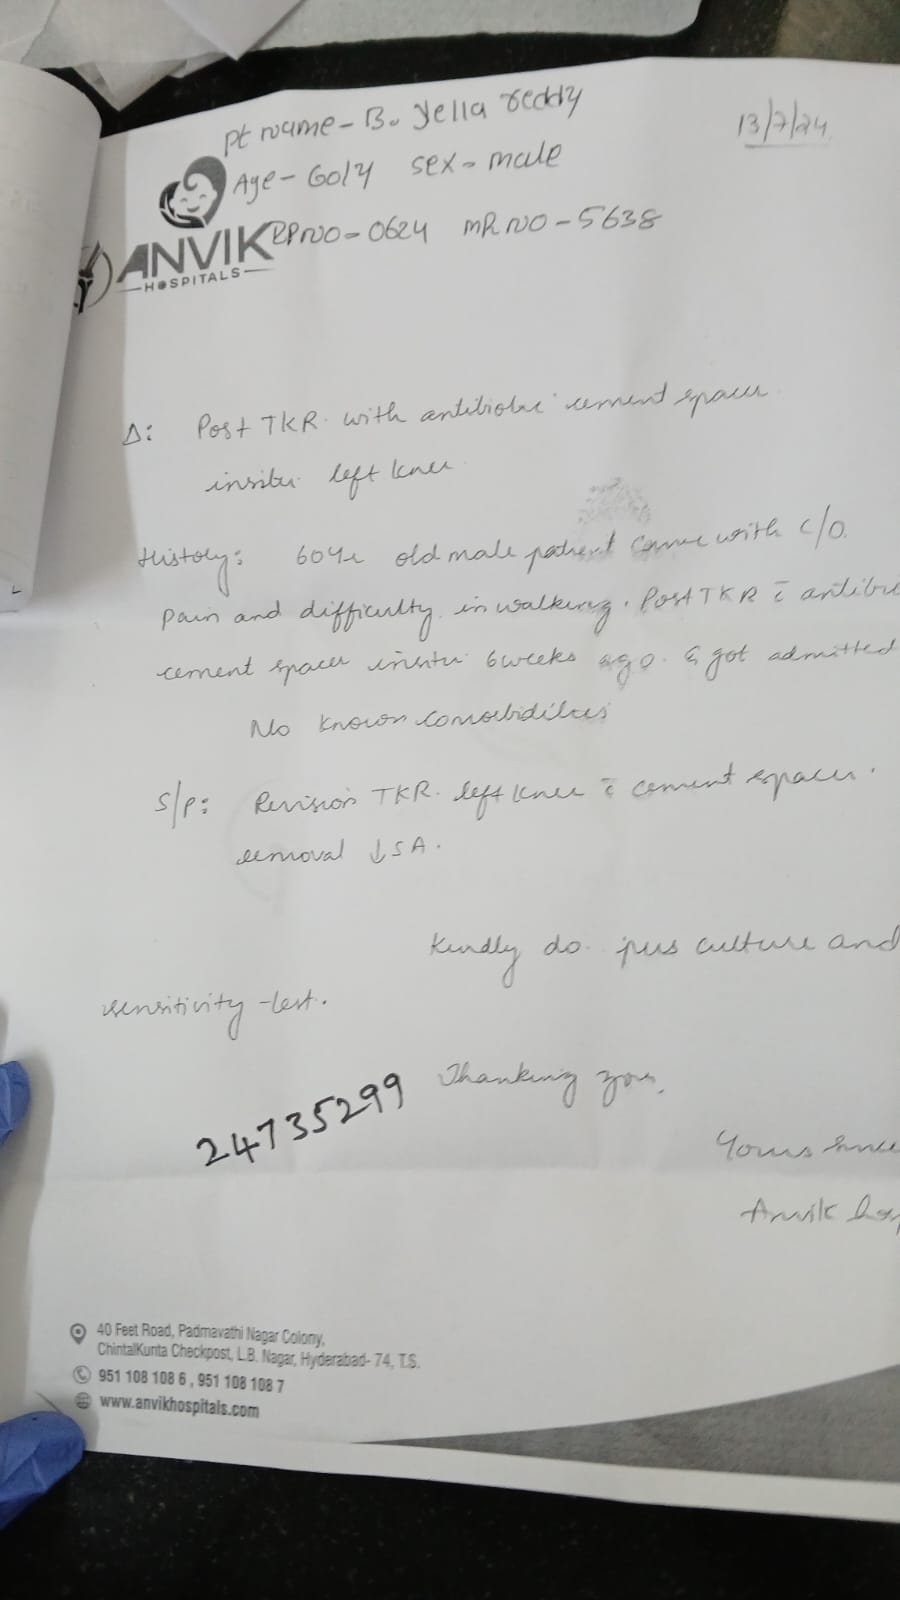 Pt Name - B. Yella reddy
13/7/24
Age - 60/y sex - male
IP NO - 0624 MR NO - 5638
ANVIK
HOSPITALS
Δ: Post TKR with antibiotic cement spacer
insitu left knee
History: 60 Yr old male patient came with c/o
pain and difficulty in walking. Post TKR c̄ antibi
cement spacer insitu 6 weeks ago. & got admitted
No known comorbidities
S/P: Revision TKR left knee c̄ cement spacer
removal ↓ SA.
Kindly do pus culture and
sensitivity test.
Thanking you,
24735299
Yours since
Anvik hos
40 Feet Road, Padmavathi Nagar Colony,
ChintalKunta Checkpost, L.B. Nagar, Hyderabad- 74, T.S.
951 108 108 6 , 951 108 108 7
www.anvikhospitals.com